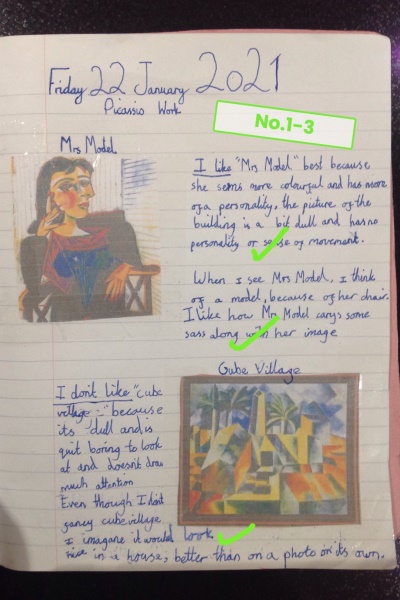 Friday 22 January 2021
Picassio Work
No.1-3
Mrs Model
I like "Mrs Model" best because
she sems more colourful and has more
of a personality, the picture of the
building is a bit dull and has no
personality or sense of movement.
When I see Mrs Model, I think
of a model, because of her chair.
I like how Mrs Model carys some
sass along with her image
Cube Village
I don't like "cube
village" because
its dull and is
quit boring to look
at and doesnt draw
much attention
Even though I don't
fancy cube village
I imagane it would look
nice in a house, better than on a photo on its own.